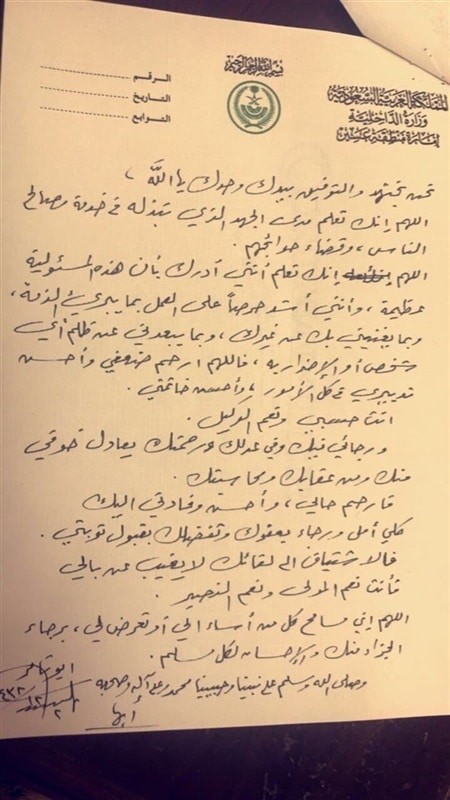 بسم الله الرحمن الرحيم
المملكة العربية السعودية
وزارة الداخلية
إمارة منطقة عسير
الرقم
التاريخ
التوابع
نحن نجتهد والتوفيق بيدك وحدك يا الله ،
اللهم إنك تعلم مدى الجهد الذي نبذله في خدمة مصالح
الناس ، وقضاء حوائجهم .
اللهم إنك تعلم أنني أدرك بأن هذه المسئولية
عظيمة ، وأنني أشد حرصاً على العمل بما يبرئ الذمة ،
وبما يغنيني بك عن غيرك ، وبما يبعدني عن ظلم أي
شخص أو الإضرار به ، فاللهم ارحم ضعفي وأحسن
تدبيري في كل الأمور ، وأحسن خاتمتي .
أنت حسبي ونعم الوكيل .
ورجائي فيك وفي عدلك ورحمتك يعادل خوفي
منك ومن عقابك ومحاسبتك .
فارحم حالي ، وأحسن وفادتي إليك
كلي أمل ورجاء بعفوك وتفضلك بقبول توبتي .
فالاشتياق إلى لقائك لا يغيب عن بالي
فأنت نعم المولى ونعم النصير .
اللهم إني مسامح كل من أساء إلي أو تعرض لي ، برجاء
الجزاء منك والإحسان لكل مسلم .
وصلى الله وسلم على نبينا وحبيبنا محمد وعلى آله وصحبه
أبها